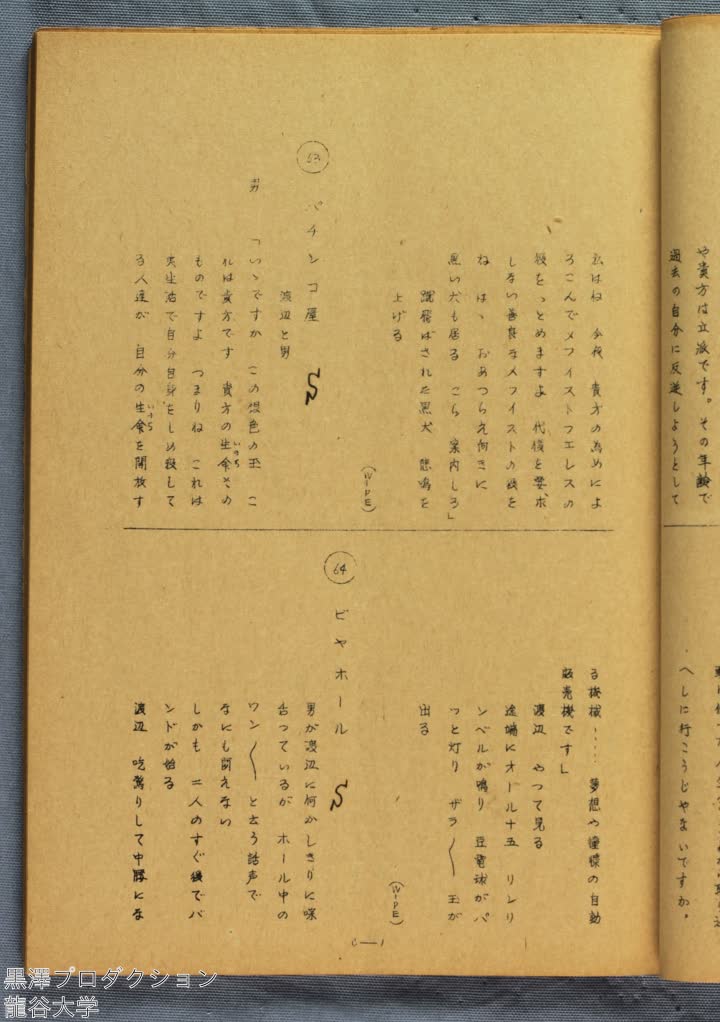 や貴方は立派です。その年齢で
過去の自分に反逆しようとして
へしに行こうじやないですか。
私はね 今夜 貴方の為めによ
ろこんでメフイストフエレスの
役をつとめますよ 代償を要求
しない善良なメフイストの役を
ね はゝ おあつらえ向きに
黒い犬も居る こら 案内しろ」
蹴飛ばされた黒犬 悲鳴を
上げる
(WIPE)
63 パチンコ屋
渡辺と男
男 「いゝですか この銀色の玉 こ
れは貴方です 貴方の生命その
いのち
ものですよ つまりね これは
実生活で自分自身をしめ殺して
る人達が 自分の生命を開放す
いのち
る機械‥‥ 夢想や憧憬の自動
販売機です」
渡辺 やつて見る
途端にオール十五 リンリ
ンベルが鳴り 豆電球がパ
つと灯り ザラ〱 玉が
出る
(WIPE)
64 ビヤホール
男が渡辺に何かしきりに喋
舌つているが ホール中の
ワン〱と云う話声で
なにも聞えない
しかも 二人のすぐ後でバ
ンドが始る
渡辺 吃驚りして中腰にな
黒澤プロダクション
龍谷大学